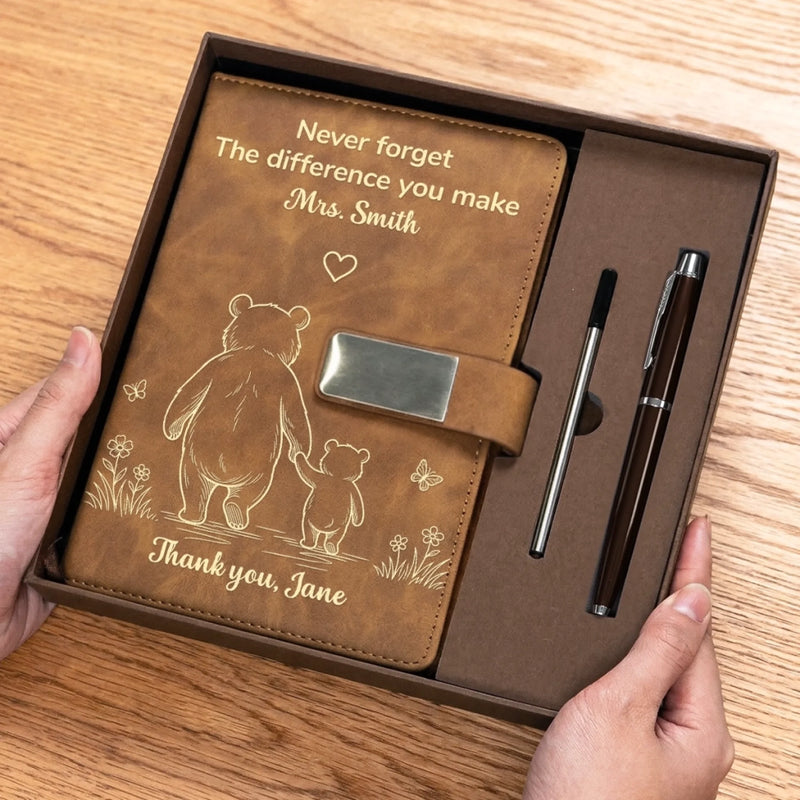 Never forget
The difference you make
Mrs. Smith
Thank you, Jane